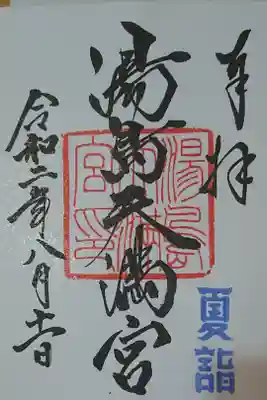 奉拝
湯島天満宮
令和二年八月十一日
夏詣